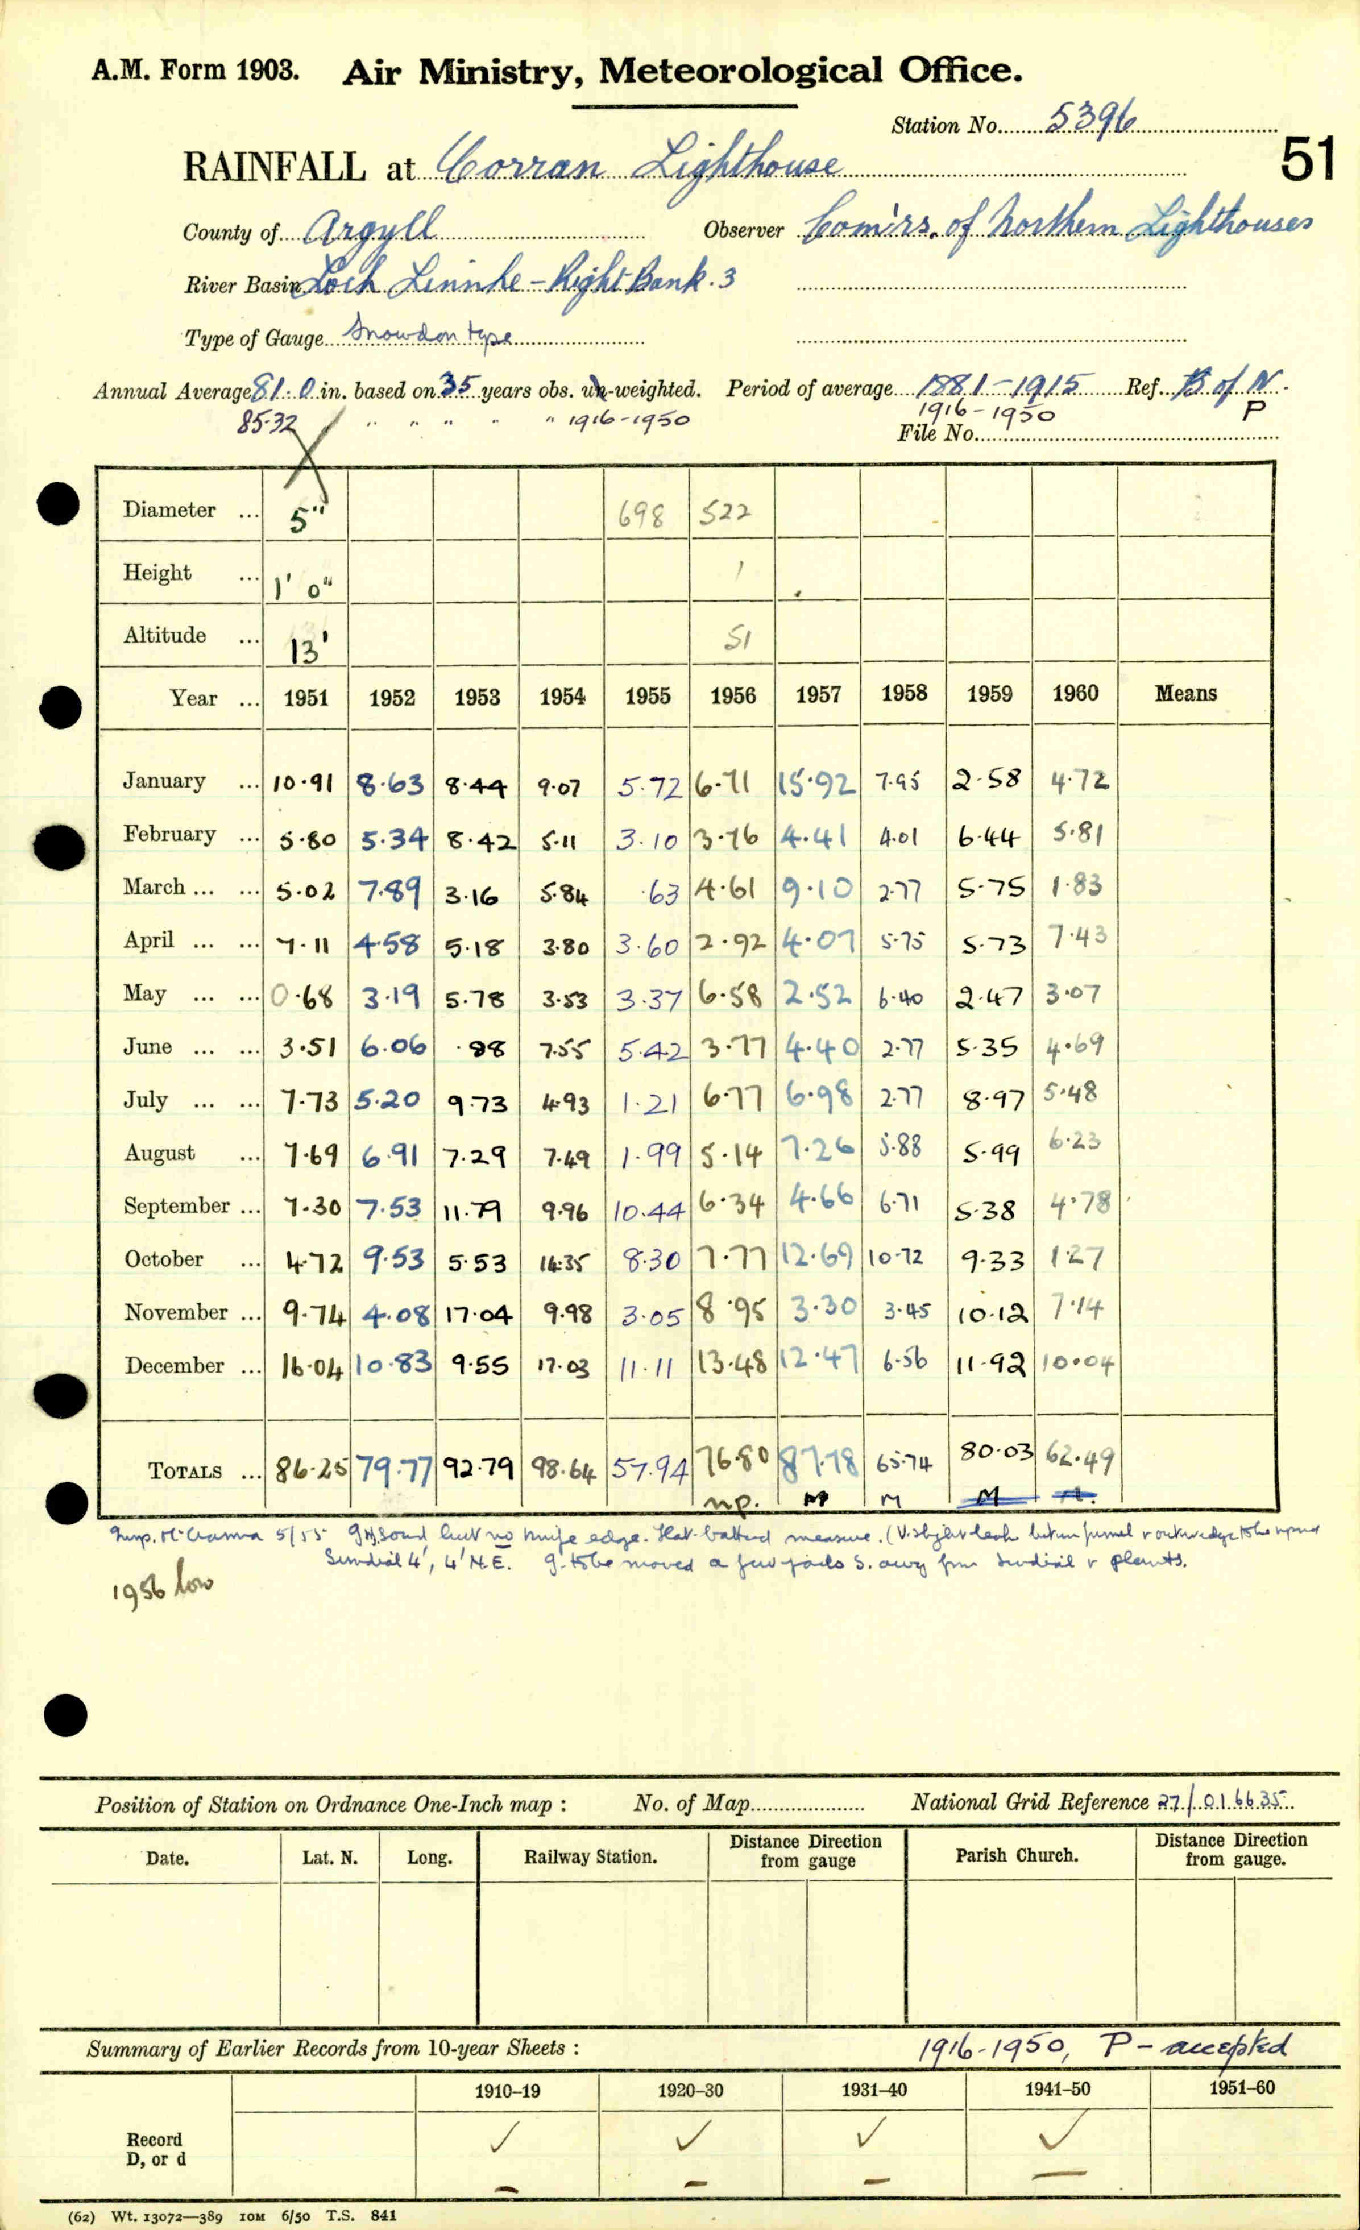 A.M. Form 1903. Air Ministry, Meteorological Office.
Station No. 5396
51
RAINFALL at Corran Lighthouse
County of Argyll Observer Com'rs. of Northern Lighthouses
River Basin Loch Linnhe - Right Bank. 3
Type of Gauge Snowdon type
Annual Average 81.0 in. based on 35 years obs. un-weighted. Period of average 1881-1915 Ref. B of N.
85.32 " " " " " 1916-1950 1916-1950 P
File No.
Diameter ... 5" 698 522
Height ... 1' 0" 1
Altitude ... 13' 51
Year ... 1951 1952 1953 1954 1955 1956 1957 1958 1959 1960 Means
January ... 10.91 8.63 8.44 9.07 5.72 6.71 15.92 7.95 2.58 4.72
February ... 5.80 5.34 8.42 5.11 3.10 3.76 4.41 4.01 6.44 5.81
March ... ... 5.02 7.89 3.16 5.84 .63 4.61 9.10 2.77 5.75 1.83
April ... ... 7.11 4.58 5.18 3.80 3.60 2.92 4.07 5.75 5.73 7.43
May ... ... 0.68 3.19 5.78 3.53 3.37 6.58 2.52 6.40 2.47 3.07
June ... ... 3.51 6.06 .88 7.55 5.42 3.77 4.40 2.77 5.35 4.69
July ... ... 7.73 5.20 9.73 4.93 1.21 6.77 6.98 2.77 8.97 5.48
August ... 7.69 6.91 7.29 7.49 1.99 5.14 7.26 5.88 5.99 6.23
September ... 7.30 7.53 11.79 9.96 10.44 6.34 4.66 6.71 5.38 4.78
October ... 4.72 9.53 5.53 14.35 8.30 7.77 12.69 10.72 9.33 1.27
November ... 9.74 4.08 17.04 9.98 3.05 8.95 3.30 3.45 10.12 7.14
December ... 16.04 10.83 9.55 17.03 11.11 13.48 12.47 6.56 11.92 10.04
TOTALS ... 86.25 79.77 92.79 98.64 57.94 76.80 87.78 65.74 80.03 62.49
np. M M M
Insp. 5/55 sound but no knife edge. Flat measure. (V. slight leak between funnel
Sundial 4', 4' N.E. g. to be moved a few yards S. away from sundial & plants.
1956 low
Position of Station on Ordnance One-Inch map : No. of Map National Grid Reference 27/016635
Date. Lat. N. Long. Railway Station. Distance Direction from gauge Parish Church. Distance Direction from gauge.
Summary of Earlier Records from 10-year Sheets : 1916-1950, P - accepted
1910-19 1920-30 1931-40 1941-50 1951-60
Record ✓ ✓ ✓ ✓
D, or d - - - -
(62) Wt. 13072—389 10M 6/50 T.S. 841